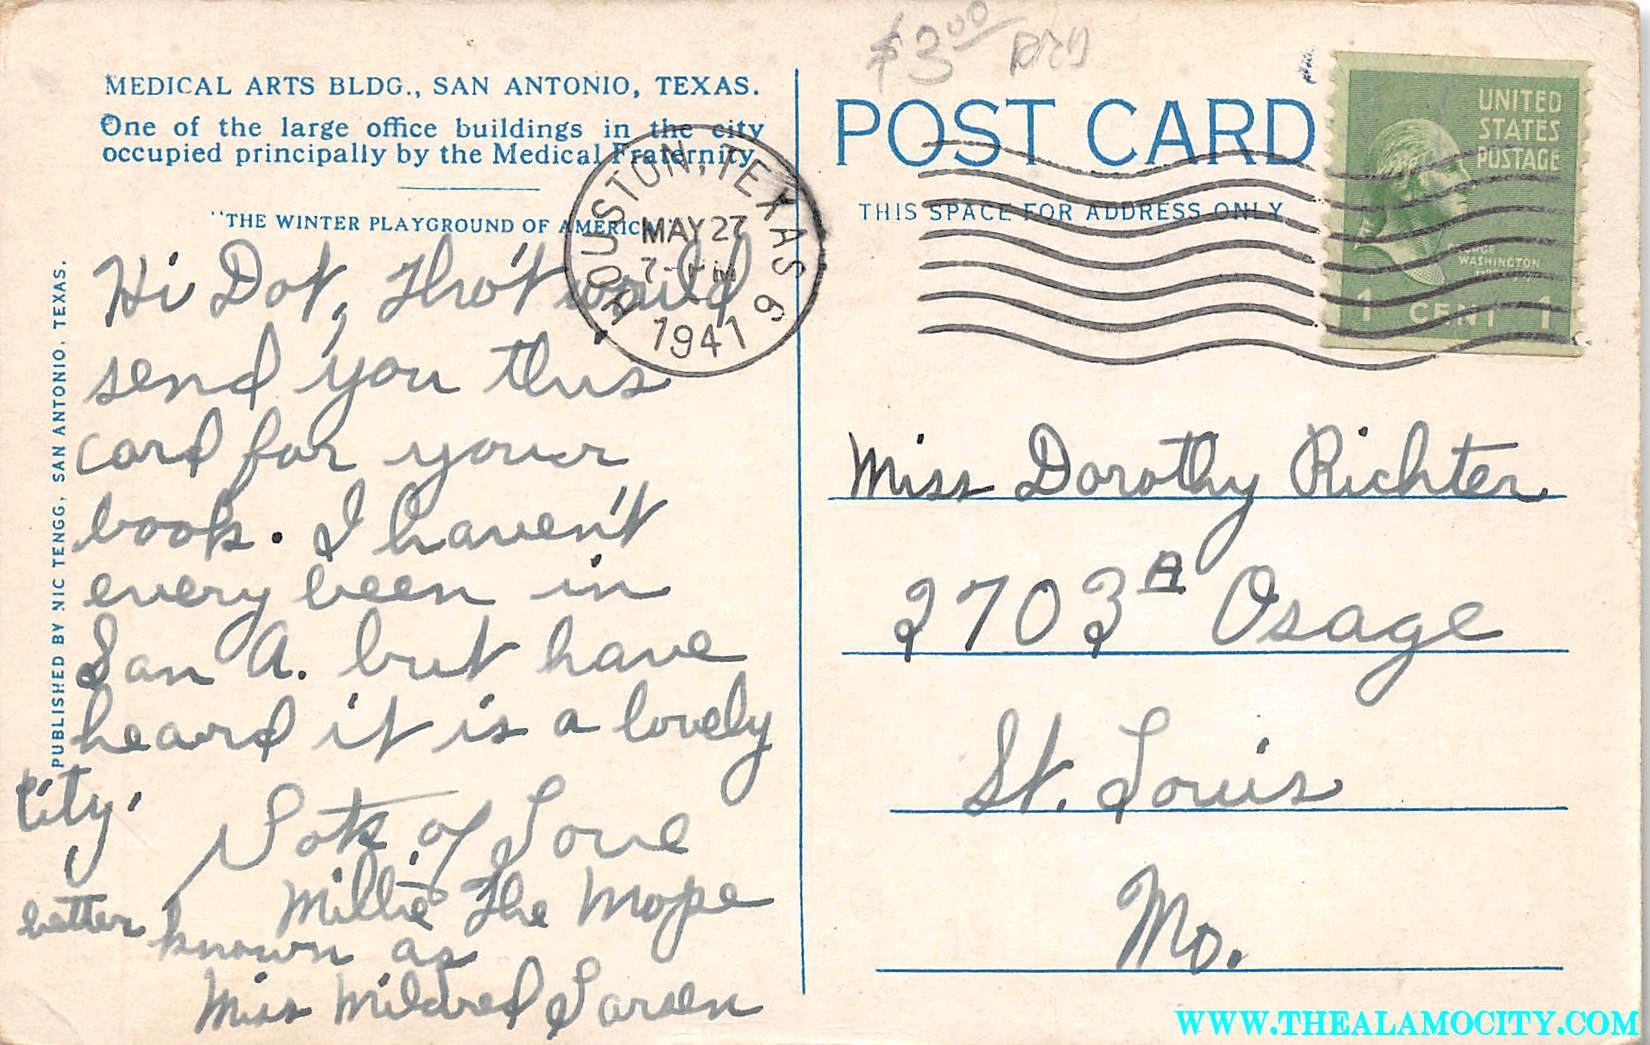 $3.00
MEDICAL ARTS BLDG., SAN ANTONIO, TEXAS.
One of the large office buildings in the city
occupied principally by the Medical Fraternity.
"THE WINTER PLAYGROUND OF AMERICA"
PUBLISHED BY NIC TENGG, SAN ANTONIO, TEXAS.
Hi Dot, Tho't would
send you this
card for your
book. I haven't
every been in
San A. but have
heard it is a lovely
city.
Lots of Love
Millie The Mope
better known as
Miss Mildred Larsen
HOUSTON, TEXAS 6
MAY 27
1941
POST CARD
THIS SPACE FOR ADDRESS ONLY
UNITED
STATES
POSTAGE
GEORGE
WASHINGTON
1 CENT 1
Miss Dorothy Richter
2703A Osage
St. Louis
Mo.
WWW.THEALAMOCITY.COM